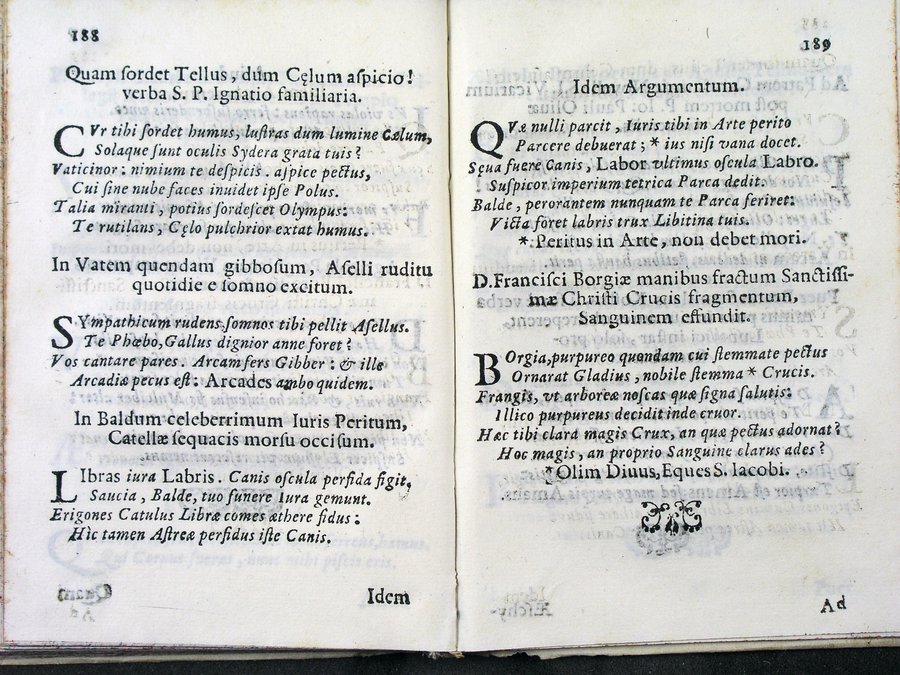 188
Quam sordet Tellus, dum Cęlum aspicio!
verba S. P. Ignatio familiaria.
CVr tibi sordet humus, lustras dum lumine Cælum,
Solaque sunt oculis Sydera grata tuis?
Vaticinor: nimium te despicis. aspice pectus,
Cui sine nube faces inuidet ipse Polus.
Talia miranti, potius sordescet Olympus:
Te rutilans, Cęlo pulchrior extat humus.
In Vatem quendam gibbosum, Aselli ruditu
quotidie e somno excitum.
SYmpathicum rudens somnos tibi pellit Asellus.
Te Phœbo, Gallus dignior anne foret?
Vos cantare pares. Arcam fers Gibber: & ille
Arcadiæ pecus est: Arcades ambo quidem.
In Baldum celeberrimum Iuris Peritum,
Catellæ sequacis morsu occisum.
LIbras iura Labris. Canis oscula perfida figit,
Saucia, Balde, tuo funere Iura gemunt.
Erigones Catulus Libræ comes æthere fidus:
Hìc tamen Astreæ perfidus iste Canis.
Idem
189
Idem Argumentum.
QVæ nulli parcit, Iuris tibi in Arte perito
Parcere debuerat; * ius nisi vana docet.
Sęua fuere Canis, Labor vltimus oscula Labro.
Suspicor imperium tetrica Parca dedit.
Balde, perorantem nunquam te Parca feriret:
Victa foret labris trux Libitina tuis.
*. Peritus in Arte, non debet mori.
D. Francisci Borgiæ manibus fractum Sanctissi-
mæ Christi Crucis fragmentum,
Sanguinem effundit.
BOrgia, purpureo quondam cui stemmate pectus
Ornarat Gladius, nobile stemma * Crucis.
Frangis, vt arboreæ noscas quæ signa salutis:
Illico purpureus decidit inde cruor.
Hæc tibi clara magis Crux, an quæ pectus adornat?
Hoc magis, an proprio Sanguine clarus ades?
*Olim Diuus, Eques S. Iacobi.
Ad